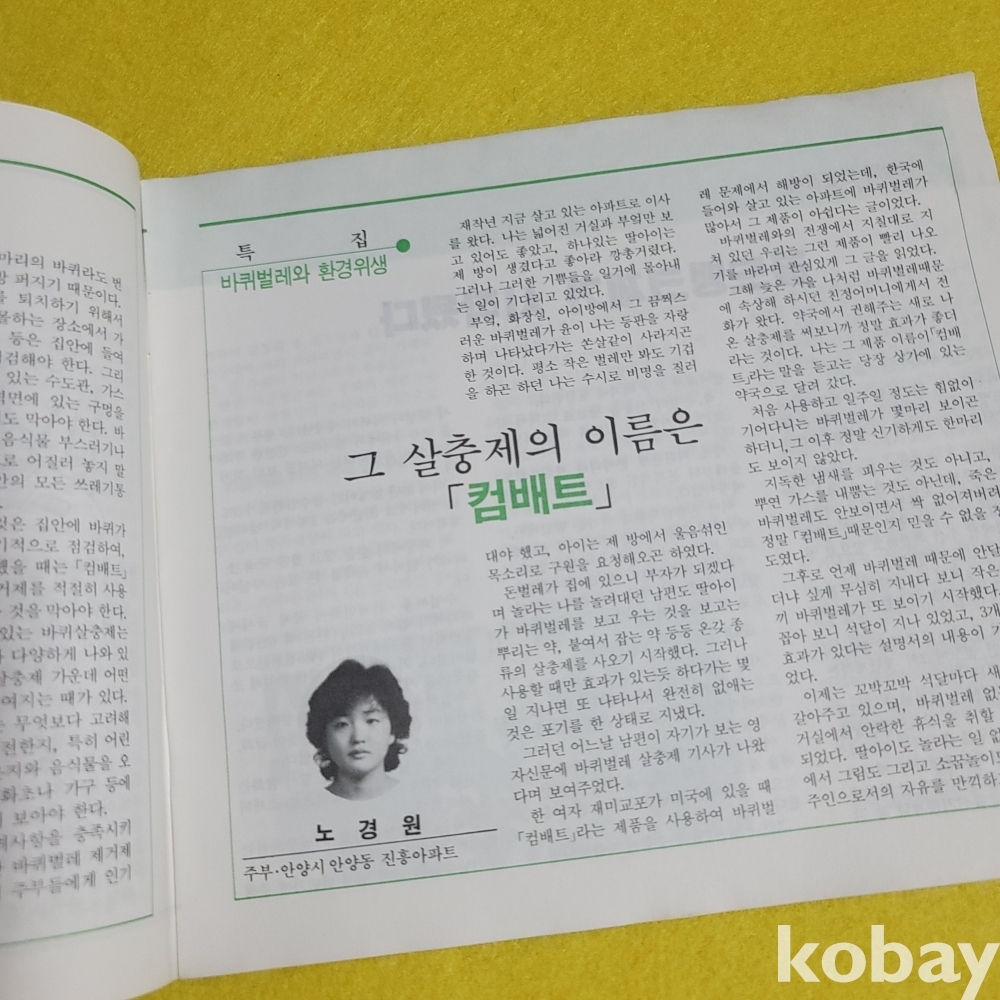 마리의 바퀴라도 번
퍼지기 때문이다.
퇴치하기 위해서
몰하는 장소에서 가
등은 집안에 들여
점검해야 한다. 그리
있는 수도관, 가스
벽면에 있는 구멍을
도 막아야 한다. 바
음식물 부스러기나
로 어질러 놓지 말
안의 모든 쓰레기통
것은 집안에 바퀴가
기적으로 점검하여,
했을 때는 「컴배트」
거제를 적절히 사용
것을 막아야 한다.
있는 바퀴살충제는
다양하게 나와 있
살충제 가운데 어떤
여지는 때가 있다.
무엇보다 고려해
전한지, 특히 어린
지와 음식물을 오
화초나 가구 등에
보아야 한다.
사항을 충족시키
바퀴벌레 제거제
주부들에게 인기
특 집
바퀴벌레와 환경위생
그 살충제의 이름은
「컴배트」
노 경 원
주부·안양시 안양동 진흥아파트
재작년 지금 살고 있는 아파트로 이사
를 왔다. 나는 넓어진 거실과 부엌만 보
고 있어도 좋았고, 하나있는 딸아이는
제 방이 생겼다고 좋아라 깡총거렸다.
그러나 그러한 기쁨들을 일기에 몰아내
는 일이 기다리고 있었다.
부엌, 화장실, 아이방에서 그 끔찍스
러운 바퀴벌레가 윤이 나는 등판을 자랑
하며 나타났다가는 쏜살같이 사라지곤
한 것이다. 평소 작은 벌레만 봐도 기겁
을 하곤 하던 나는 수시로 비명을 질러
대야 했고, 아이는 제 방에서 울음섞인
목소리로 구원을 요청해오곤 하였다.
돈벌레가 집에 있으니 부자가 되겠다
며 놀라는 나를 놀려대던 남편도 딸아이
가 바퀴벌레를 보고 우는 것을 보고는
뿌리는 약, 붙여서 잡는 약 등등 온갖 종
류의 살충제를 사오기 시작했다. 그러나
사용할 때만 효과가 있는듯 하다가는 몇
일 지나면 또 나타나서 완전히 없애는
것은 포기를 한 상태로 지냈다.
그러던 어느날 남편이 자기가 보는 영
자신문에 바퀴벌레 살충제 기사가 나왔
다며 보여주었다.
한 여자 재미교포가 미국에 있을 때
「컴배트」라는 제품을 사용하여 바퀴벌
레 문제에서 해방이 되었는데, 한국에
들어와 살고 있는 아파트에 바퀴벌레가
많아서 그 제품이 아쉽다는 글이었다.
바퀴벌레와의 전쟁에서 지칠대로 지
쳐 있던 우리는 그런 제품이 빨리 나오
기를 바라며 관심있게 그 글을 읽었다.
그해 늦은 가을 나처럼 바퀴벌레때문
에 속상해 하시던 친정어머니에게서 전
화가 왔다. 약국에서 권해주는 새로 나
온 살충제를 써보니까 정말 효과가 좋더
라는 것이다. 나는 그 제품 이름이 「컴배
트」라는 말을 듣고는 당장 상가에 있는
약국으로 달려 갔다.
처음 사용하고 일주일 정도는 힘없이
기어다니는 바퀴벌레가 몇마리 보이곤
하더니, 그 이후 정말 신기하게도 한마리
도 보이지 않았다.
지독한 냄새를 피우는 것도 아니고,
뿌연 가스를 내뿜는 것도 아닌데, 죽은
바퀴벌레도 안보이면서 싹 없어져버려
정말 「컴배트」때문인지 믿을 수 없을 정
도였다.
그후로 언제 바퀴벌레 때문에 안달
더냐 싶게 무심히 지내다 보니 작은
끼 바퀴벌레가 또 보이기 시작했다.
꼽아 보니 석달이 지나 있었고, 3개
효과가 있다는 설명서의 내용이
었다.
이제는 꼬박꼬박 석달마다 새
갈아주고 있으며, 바퀴벌레 없
거실에서 안락한 휴식을 취할
되었다. 딸아이도 놀라는 일 없
에서 그림도 그리고 소꿉놀이도
주인으로서의 자유를 만끽하
kobay